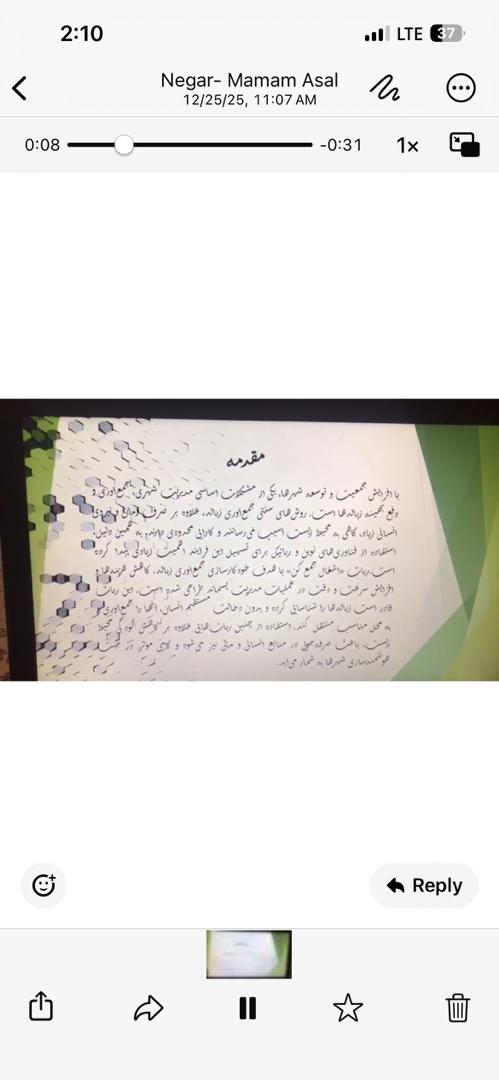 2:10
LTE 37
Negar- Mamam Asal
12/25/25, 11:07 AM
0:08
-0:31
1×
مقدمه
با افزایش جمعیت و توسعه شهرها، یکی از مشکلات اساسی مدیریت شهری، جمع‌آوری و
دفع بهینه زباله‌ها است. روش‌های سنتی جمع‌آوری زباله، علاوه بر صرف زمان و نیروی
انسانی زیاد، گاهی به محیط زیست آسیب می‌رسانند و کارایی محدودی دارند. به همین دلیل،
استفاده از فناوری‌های نوین و رباتیک برای تسهیل این فرآیند اهمیت زیادی پیدا کرده
است. ربات «آشغال جمع کن» با هدف خودکارسازی جمع‌آوری زباله، کاهش هزینه‌ها و
افزایش سرعت و دقت در عملیات مدیریت پسماند طراحی شده است. این ربات
قادر است زباله‌ها را شناسایی کرده و بدون دخالت مستقیم انسان، آنها را جمع‌آوری و
به محل مناسب منتقل کند. استفاده از چنین ربات‌هایی علاوه بر کاهش آلودگی محیط
زیست، باعث صرفه‌جویی در منابع انسانی و مالی نیز می‌شود و گامی موثر در جهت
هوشمندسازی شهرها به شمار می‌آید.
Reply